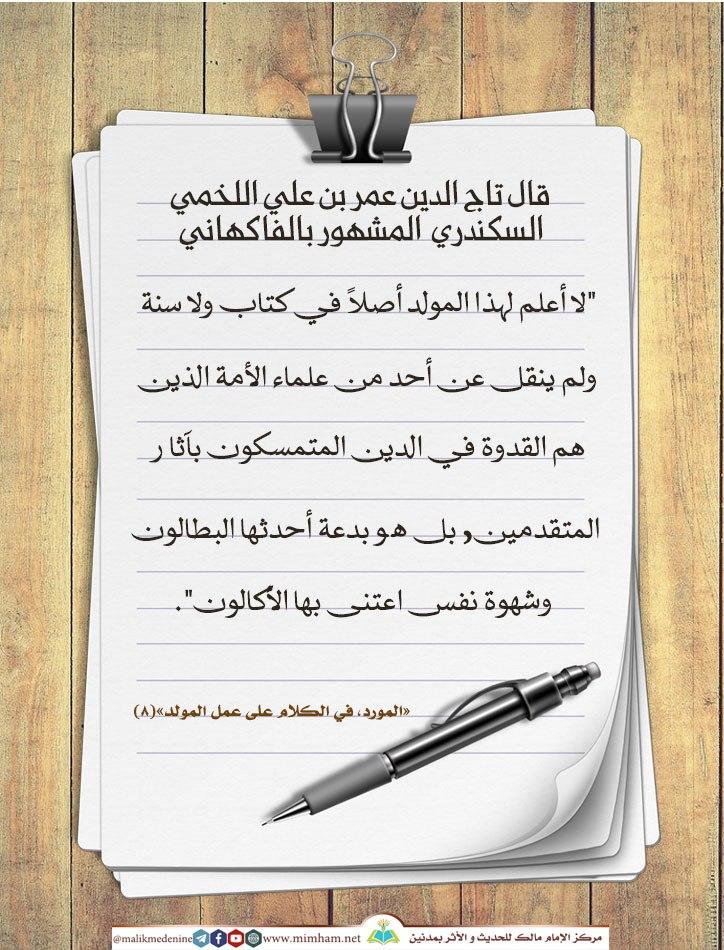 قال تاج الدين عمر بن علي اللخمي
السكندري المشهور بالفاكهاني
"لا أعلم لهذا المولد أصلاً في كتاب ولا سنة
ولم ينقل عن أحد من علماء الأمة الذين
هم القدوة في الدين المتمسكون بآثار
المتقدمين, بل هو بدعة أحدثها البطالون
وشهوة نفس اعتنى بها الأكالون".
«المورد، في الكلام على عمل المولد»(٨)
مركز الإمام مالك للحديث و الأثر بمدنين
www.mimham.net
@malikmedenine